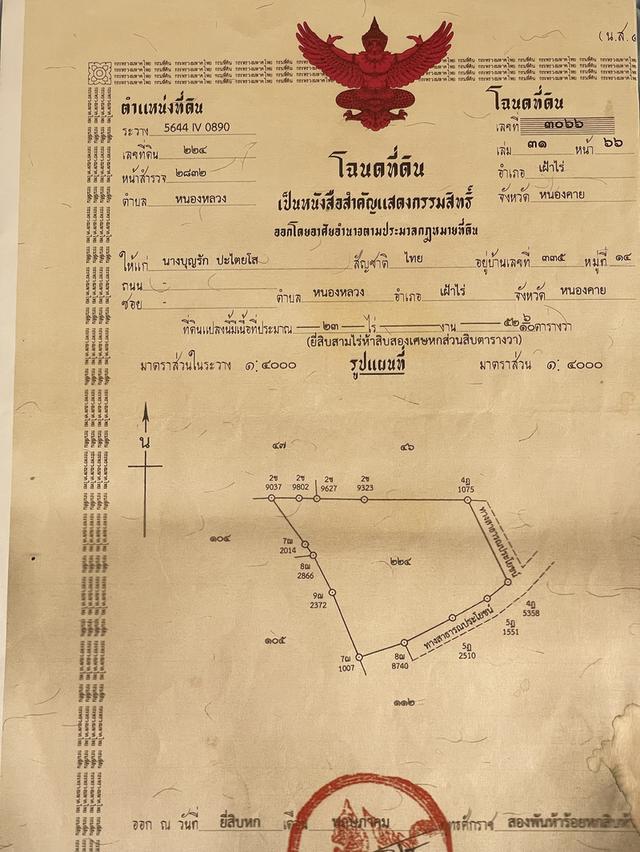 (น.ส. ๔
ตำแหน่งที่ดิน
ระวาง 5644 IV 0890
เลขที่ดิน ๒๒๔
หน้าสำรวจ ๒๘๓๒
ตำบล หนองหลวง
โฉนดที่ดิน
เลขที่ ๓๐๖๖
เล่ม ๓๑ หน้า ๖๖
อำเภอ เฝ้าไร่
จังหวัด หนองคาย
โฉนดที่ดิน
เป็นหนังสือสำคัญแสดงกรรมสิทธิ์
ออกโดยอาศัยอำนาจตามประมวลกฎหมายที่ดิน
ให้แก่ นางบุญรัก ปะไตยโส สัญชาติ ไทย อยู่บ้านเลขที่ ๓๓๕ หมู่ที่ ๑๔
ถนน -
ซอย - ตำบล หนองหลวง อำเภอ เฝ้าไร่ จังหวัด หนองคาย
ที่ดินแปลงนี้มีเนื้อที่ประมาณ ๒๓ ไร่ งาน ๕๒ ๖/๑๐ ตารางวา
(ยี่สิบสามไร่ห้าสิบสองเศษหกส่วนสิบตารางวา)
มาตราส่วนในระวาง ๑:๔๐๐๐ รูปแผนที่ มาตราส่วน ๑:๔๐๐๐
น
๔๗ ๔๖
2ช 2ช 2ช 2ช 4ฎ
9037 9802 9627 9323 1075
ทางสาธารณประโยชน์
๑๐๔
7ฒ
2014
8ฒ
2866
๒๒๔
9ฒ
2372
4ฎ
5358
5ฎ
1551
ทางสาธารณประโยชน์
๑๐๕
5ฎ
2510
7ฒ
1007
8ฒ
8740
๑๑๒
ออก ณ วันที่ ยี่สิบหก เดือน พฤษภาคม พุทธศักราช สองพันห้าร้อยหกสิบห้า